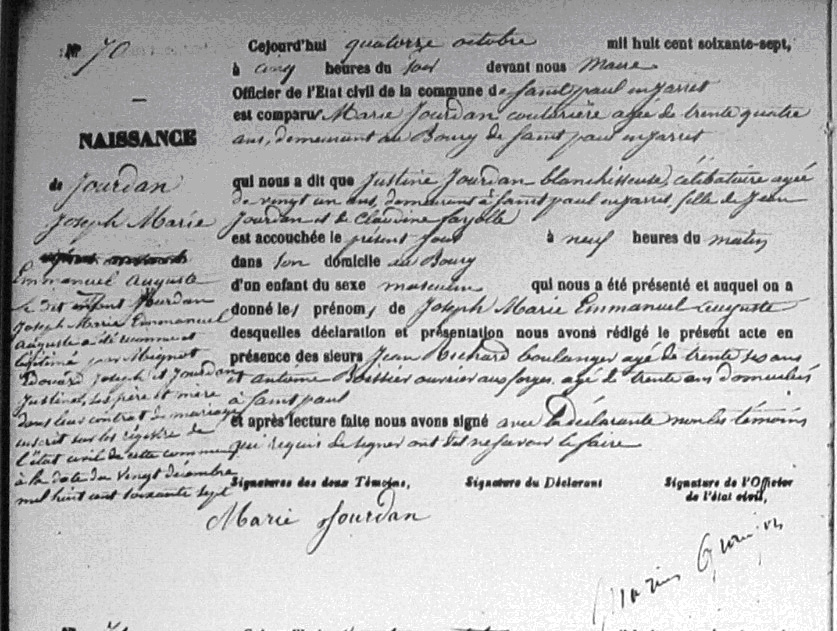 N° 70
NAISSANCE
de Jourdan
Joseph Marie
Emmanuel Auguste
Le dit enfant Jourdan
Joseph Marie Emmanuel
Auguste a été reconnu et
légitimé par Mignot
Edouard Joseph et Jourdan
Justine, ses père et mère
dans leur contrat de mariage
inscrit sur les registre de
l'état civil de cette commune
à la date du vingt décembre
mil huit cent soixante sept
Cejourd'hui quatorze octobre mil huit cent soixante-sept,
à cinq heures du soir devant nous Maire
Officier de l'Etat civil de la commune de saint paul en jarret
est comparu Marie Jourdan couturière agée de trente quatre
ans, demeurant au Bourg de saint paul en jarret
qui nous a dit que Justine Jourdan blanchisseuse, célibataire agée
de vingt un ans, demeurant à saint paul en jarret, fille de Jean
Jourdan et de Claudine fayolle
est accouchée le présent jour à neuf heures du matin
dans son domicile au Bourg
d'un enfant du sexe masculin qui nous a été présenté et auquel on a
donné les prénoms de Joseph Marie Emmanuel Auguste
desquelles déclaration et présentation nous avons rédigé le présent acte en
présence des sieurs Jean Richard boulanger agé de trente six ans
et antoine Boissier ouvrier aux forges agé de trente ans domiciliés
à saint paul
et après lecture faite nous avons signé avec la déclarante non les témoins
qui requis de signer ont dit ne savoir le faire
Signatures des deux Témoins, Signature du Déclarant Signature de l'Officier
de l'état civil,
Marie Jourdan